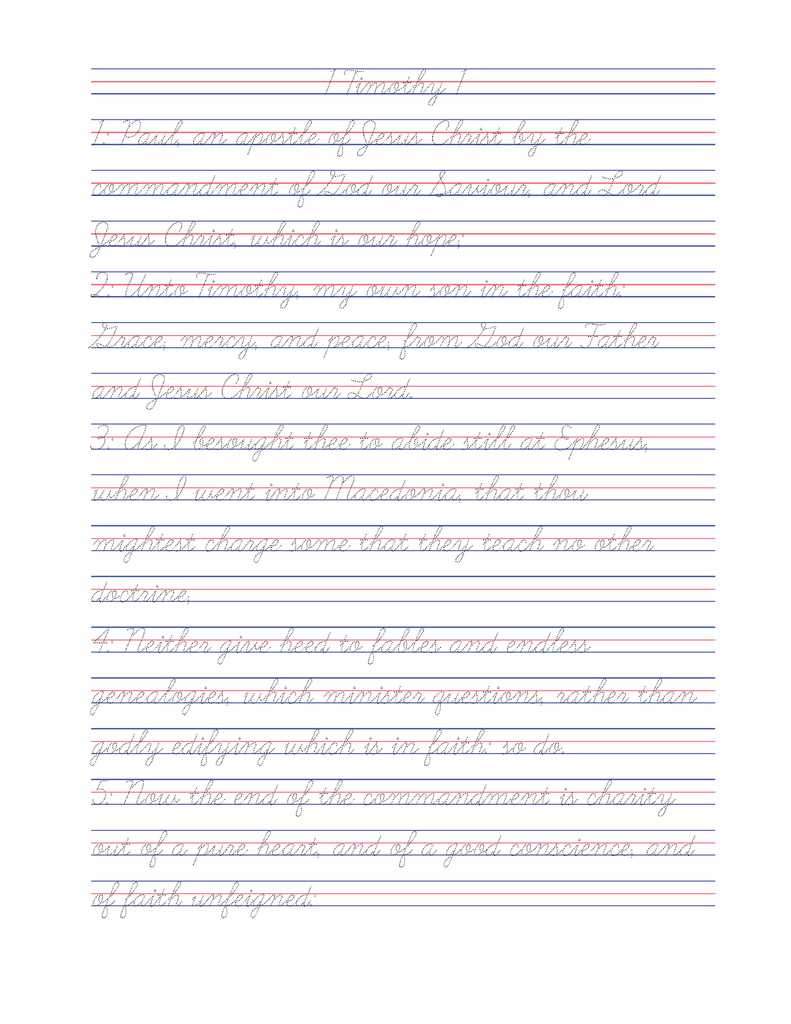 1 Timothy 1
1: Paul, an apostle of Jesus Christ by the
commandment of God our Saviour, and Lord
Jesus Christ, which is our hope;
2: Unto Timothy, my own son in the faith:
Grace, mercy, and peace, from God our Father
and Jesus Christ our Lord.
3: As I besought thee to abide still at Ephesus,
when I went into Macedonia, that thou
mightest charge some that they teach no other
doctrine,
4: Neither give heed to fables and endless
genealogies, which minister questions, rather than
godly edifying which is in faith: so do.
5: Now the end of the commandment is charity
out of a pure heart, and of a good conscience, and
of faith unfeigned: